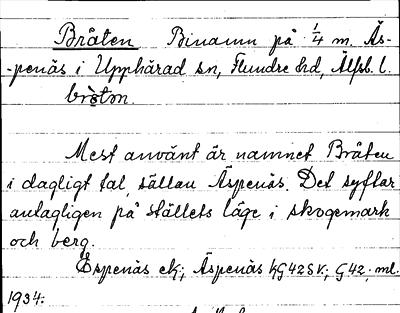 Bråten Binamn på 1/4 m. Äs-
-penäs i Upphärad sn, Flundre hd, Älfsb. l.
bròtn.
Mest använt är namnet Bråten
i dagligt tal, sällan Äspenäs. Det syftar
antagligen på ställets läge i skogsmark
och berg.
Espenäs ek; Äspenäs hG42SV; G42 ml.
1934.